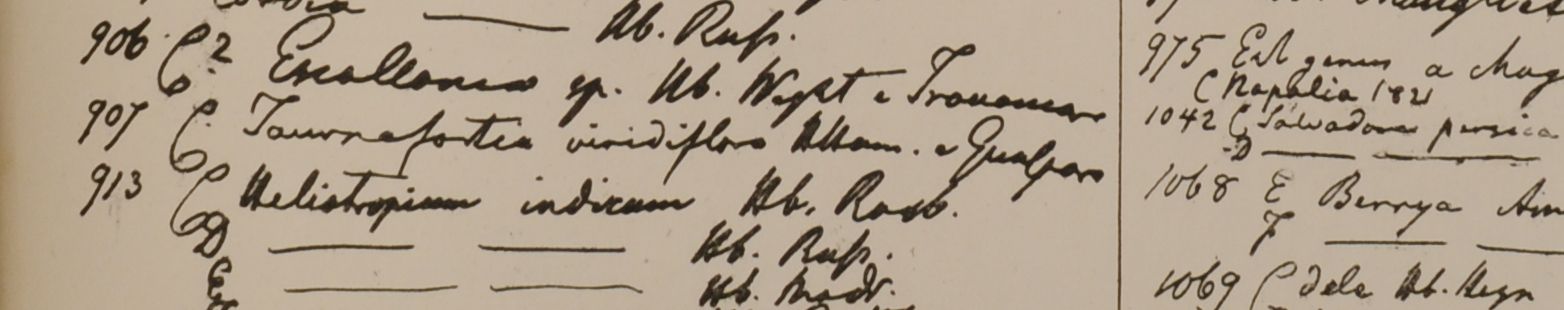 Hb. Russ.
906 C 2 Escallonia sp. Hb. Wight e Travancar
907 C Tournefortia viridiflora Hb. Ham. e Gualpara
913 C Heliotropium indicum Hb. Roxb.
D — — Hb. Russ.
E — — Hb. Madr.
975 genus a
C Napalia 1821
1042 C Salvadora persica
D — —
1068 E Berrya Am
F — —
1069 C dele Hb. Heyn